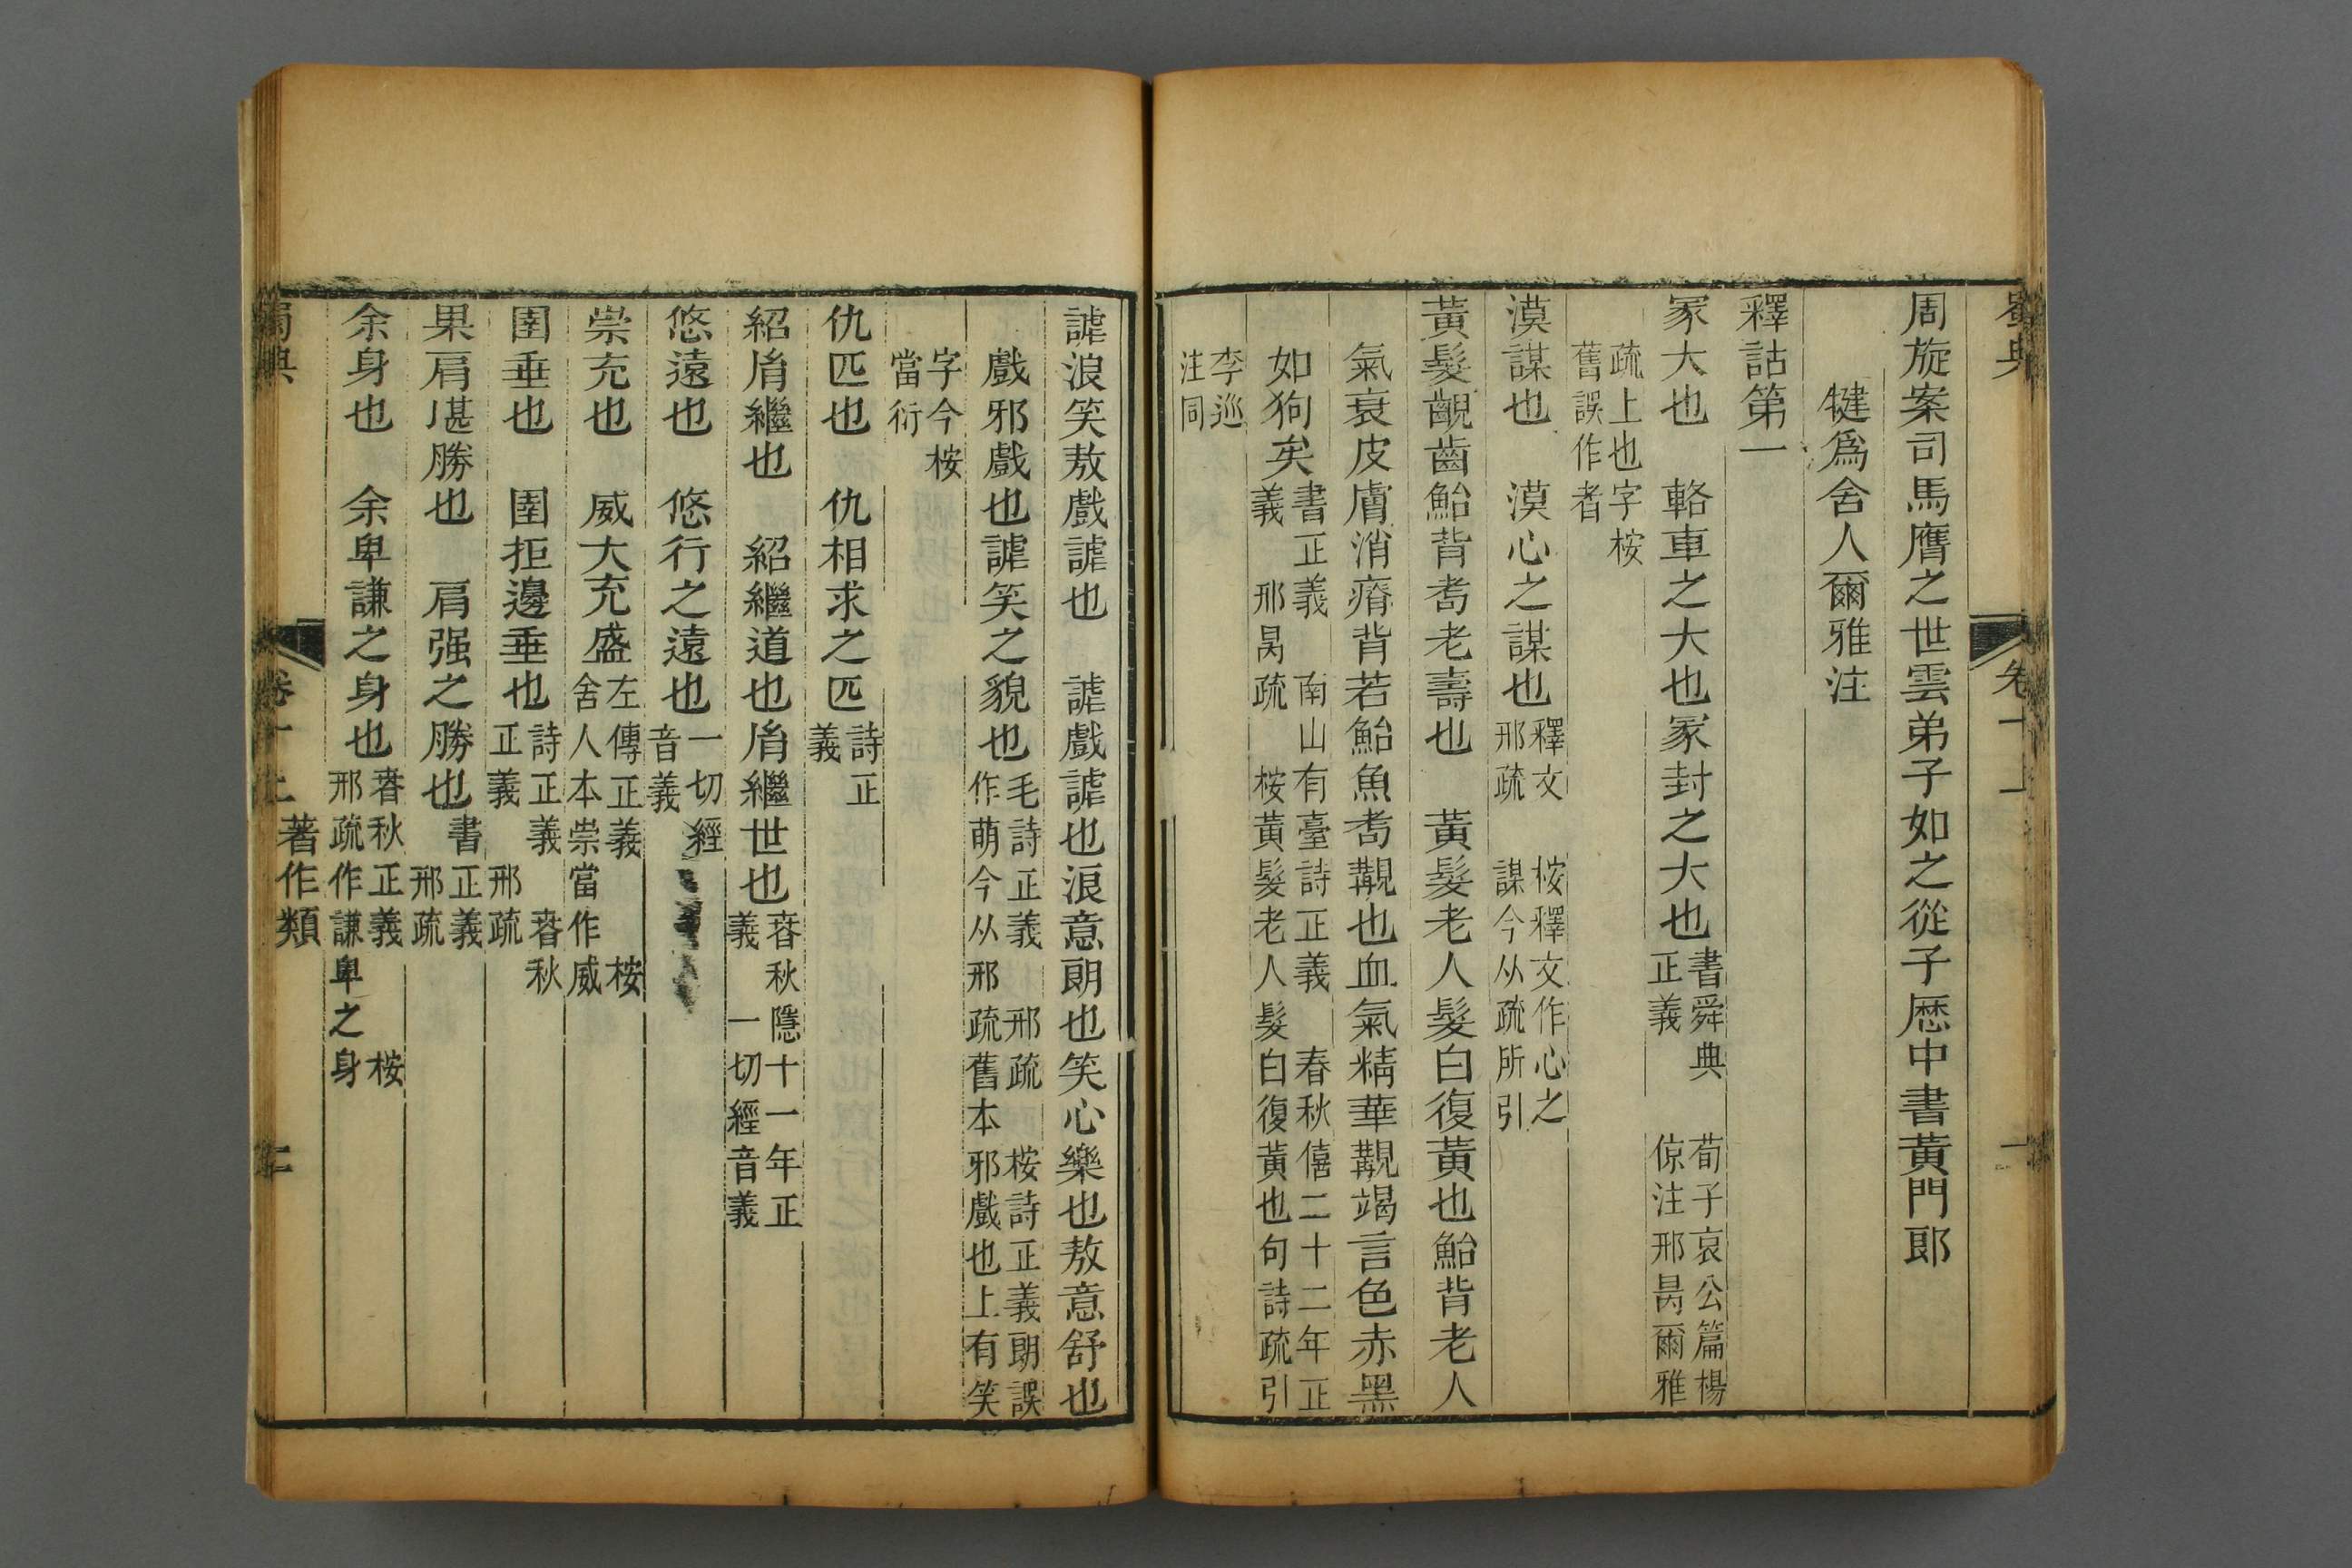 蜀典 卷十上 一
周旋案司馬膺之世雲弟子如之從子歷中書黃門郎
犍爲舍人爾雅注
釋詁第一
冢大也 輅車之大也冢封之大也書舜典正義 荀子哀公篇楊倞注邢昺爾雅
疏上也字桉舊誤作者
漠謀也 漠心之謀也釋文邢疏 桉釋文作心之謀今从疏所引
黃髮齯齒鮐背耇老壽也 黃髮老人髮白復黃也鮐背老人
氣衰皮膚消瘠背若鮐魚耇覯也血氣精華覯竭言色赤黑
如狗矣書正義 南山有臺詩正義 春秋僖二十二年正義 邢昺疏 桉黃髮老人髮白復黃也句詩疏引
李巡注同
謔浪笑敖戲謔也 謔戲謔也浪意朗也笑心樂也敖意舒也
戲邪戲也謔笑之貌也毛詩正義 邢疏 桉詩正義朗誤作萌今从邢疏舊本邪戲也上有笑
字今桉當衍
仇匹也 仇相求之匹詩正義
紹胤繼也 紹繼道也胤繼世也春秋隱十一年正義 一切經音義
悠遠也 悠行之遠也一切經音義
崇充也 威大充盛左傳正義 桉舍人本崇當作威
圉垂也 圉拒邊垂也詩正義 春秋正義 邢疏
果肩堪勝也 肩强之勝也書正義 邢疏
余身也 余卑謙之身也春秋正義 桉邢疏作謙卑之身
蜀典 卷十上 著作類 二